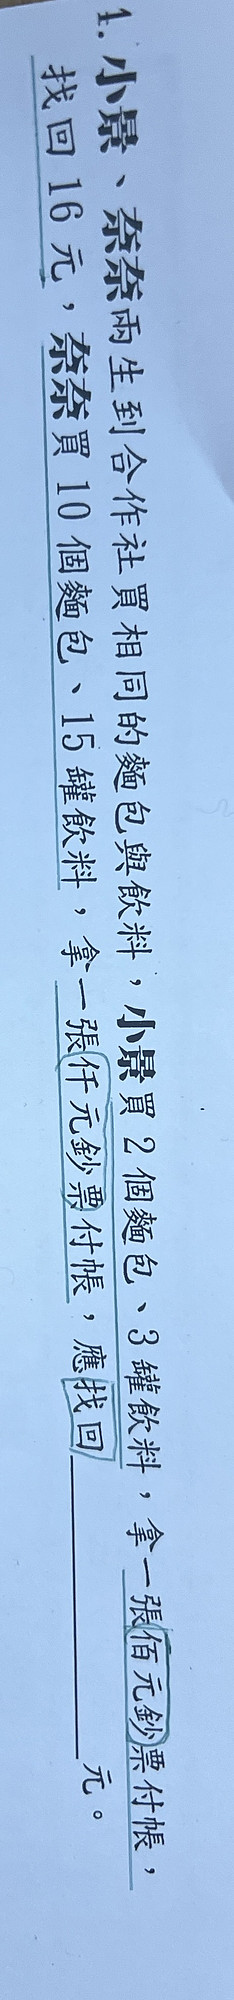 1. 小景、奈奈兩生到合作社買相同的麵包與飲料，小景買 2 個麵包、3 罐飲料，拿一張佰元鈔票付帳，
找回 16 元，奈奈買 10 個麵包、15 罐飲料，拿一張仟元鈔票付帳，應找回＿＿＿＿＿＿元。